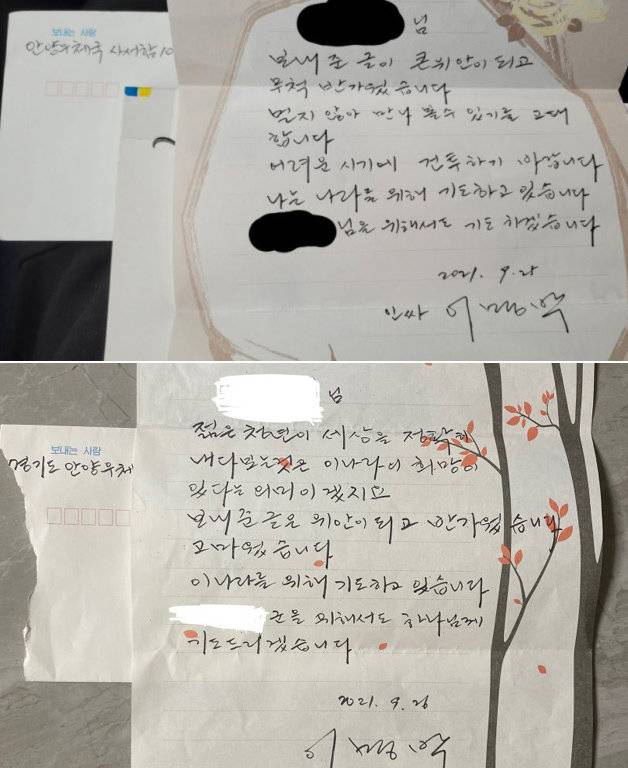 보내는 사람
안양우체국 사서함 10
님
보내준 글이 큰 위안이 되고
무척 반가웠습니다
멀지 않아 만나 볼수 있기를 고대
합니다
어려운 시기에 건투하기 바랍니다
나는 나라를 위해 기도하고 있습니다
님을 위해서도 기도 하겠습니다
2021. 9. 25
인싸 이명박
님
젊은 청년이 세상을 정확히
내다보는것은 이나라에 희망이
있다는 의미이겠지요
보내준 글은 위안이 되고 반가웠습니다
고마웠습니다
이나라를 위해 기도하고 있습니다
군을 위해서도 하나님께
기도드리겠습니다
2021. 9. 26
이명박
보내는 사람
경기도 안양우체